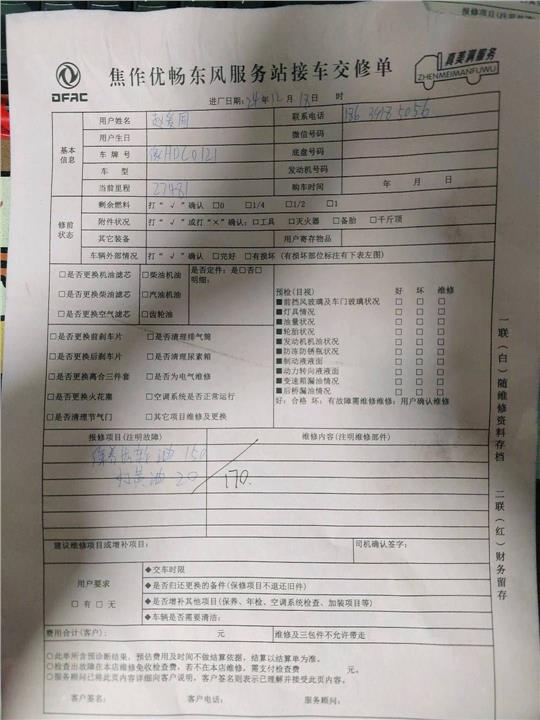 维修项目(注明
DFAC
焦作优畅东风服务站接车交修单
真美满服务
ZHENMEIMANFUWU
进厂日期: 24年12月18日 时
基本信息
用户姓名
联系电话
用户生日 微信号码
车牌号 底盘号码
车型 发动机号码
当前里程 27481 购车时间 年 月 日
修前状态
剩余燃料 打“√”确认 □0 □1/4 □1/2 □1
附件状况 打“√”或打“×”确认:□工具 □灭火器 □备胎 □千斤顶
其它装备 用户寄存物品
车辆外部情况 打“√”确认 □完好 □有损坏(有损坏部位标注有下表左图)
□是否更换机油滤芯 □柴油机油 是否定件:是□否□
明细:
□是否更换柴油滤芯 □汽油机油
□是否更换空气滤芯 □齿轮油
□是否更换前刹车片 □是否清理排气筒
□是否更换后刹车片 □是否清理尿素箱
□是否更换离合三件套 □是否为电气维修
□是否更换火花塞 □空调系统是否正常运行
□是否清理节气门 □其它项目维修及更换
预检(目视) 好 坏 维修
■前挡风玻璃及车门玻璃状况 □ □ □
■灯具情况 □ □ □
■油量状况 □ □ □
■轮胎状况 □ □ □
■发动机机油状况 □ □ □
■防冻防锈瓶状况 □ □ □
■制动液液面 □ □ □
■动力转向液液面 □ □ □
■变速箱漏油情况 □ □ □
■后桥漏油情况 □ □ □
好:合格 坏:有故障需维修维修:用户确认维修
报修项目(注明故障) 维修内容(注明维修部件)
油 150
打黄油 20
170.
建议维修项目或增补项目: 司机确认签字:
用户要求
□有□无
◆交车时限
◆是否归还更换的备件(保修项目不退还旧件)
◆是否增补其他项目(保养、年检、空调系统检查、加装项目等)
◆车辆是否需要清洁:
费用合计(客户): 元 维修及三包件不允许带走
◇此单所含预诊断结果,预估费用及时间不做结算依据,结算以结算单为准。
◇检查出故障在本店维修免收检查费,若不在本店维修,需支付检查费 元。
◇服务顾问已将此页内容详细向客户说明,客户签名则表示已理解并接受此页内容。
客户签名: 客户电话: 服务顾问:
一联(白)随维修资料存档
二联(红)财务留存